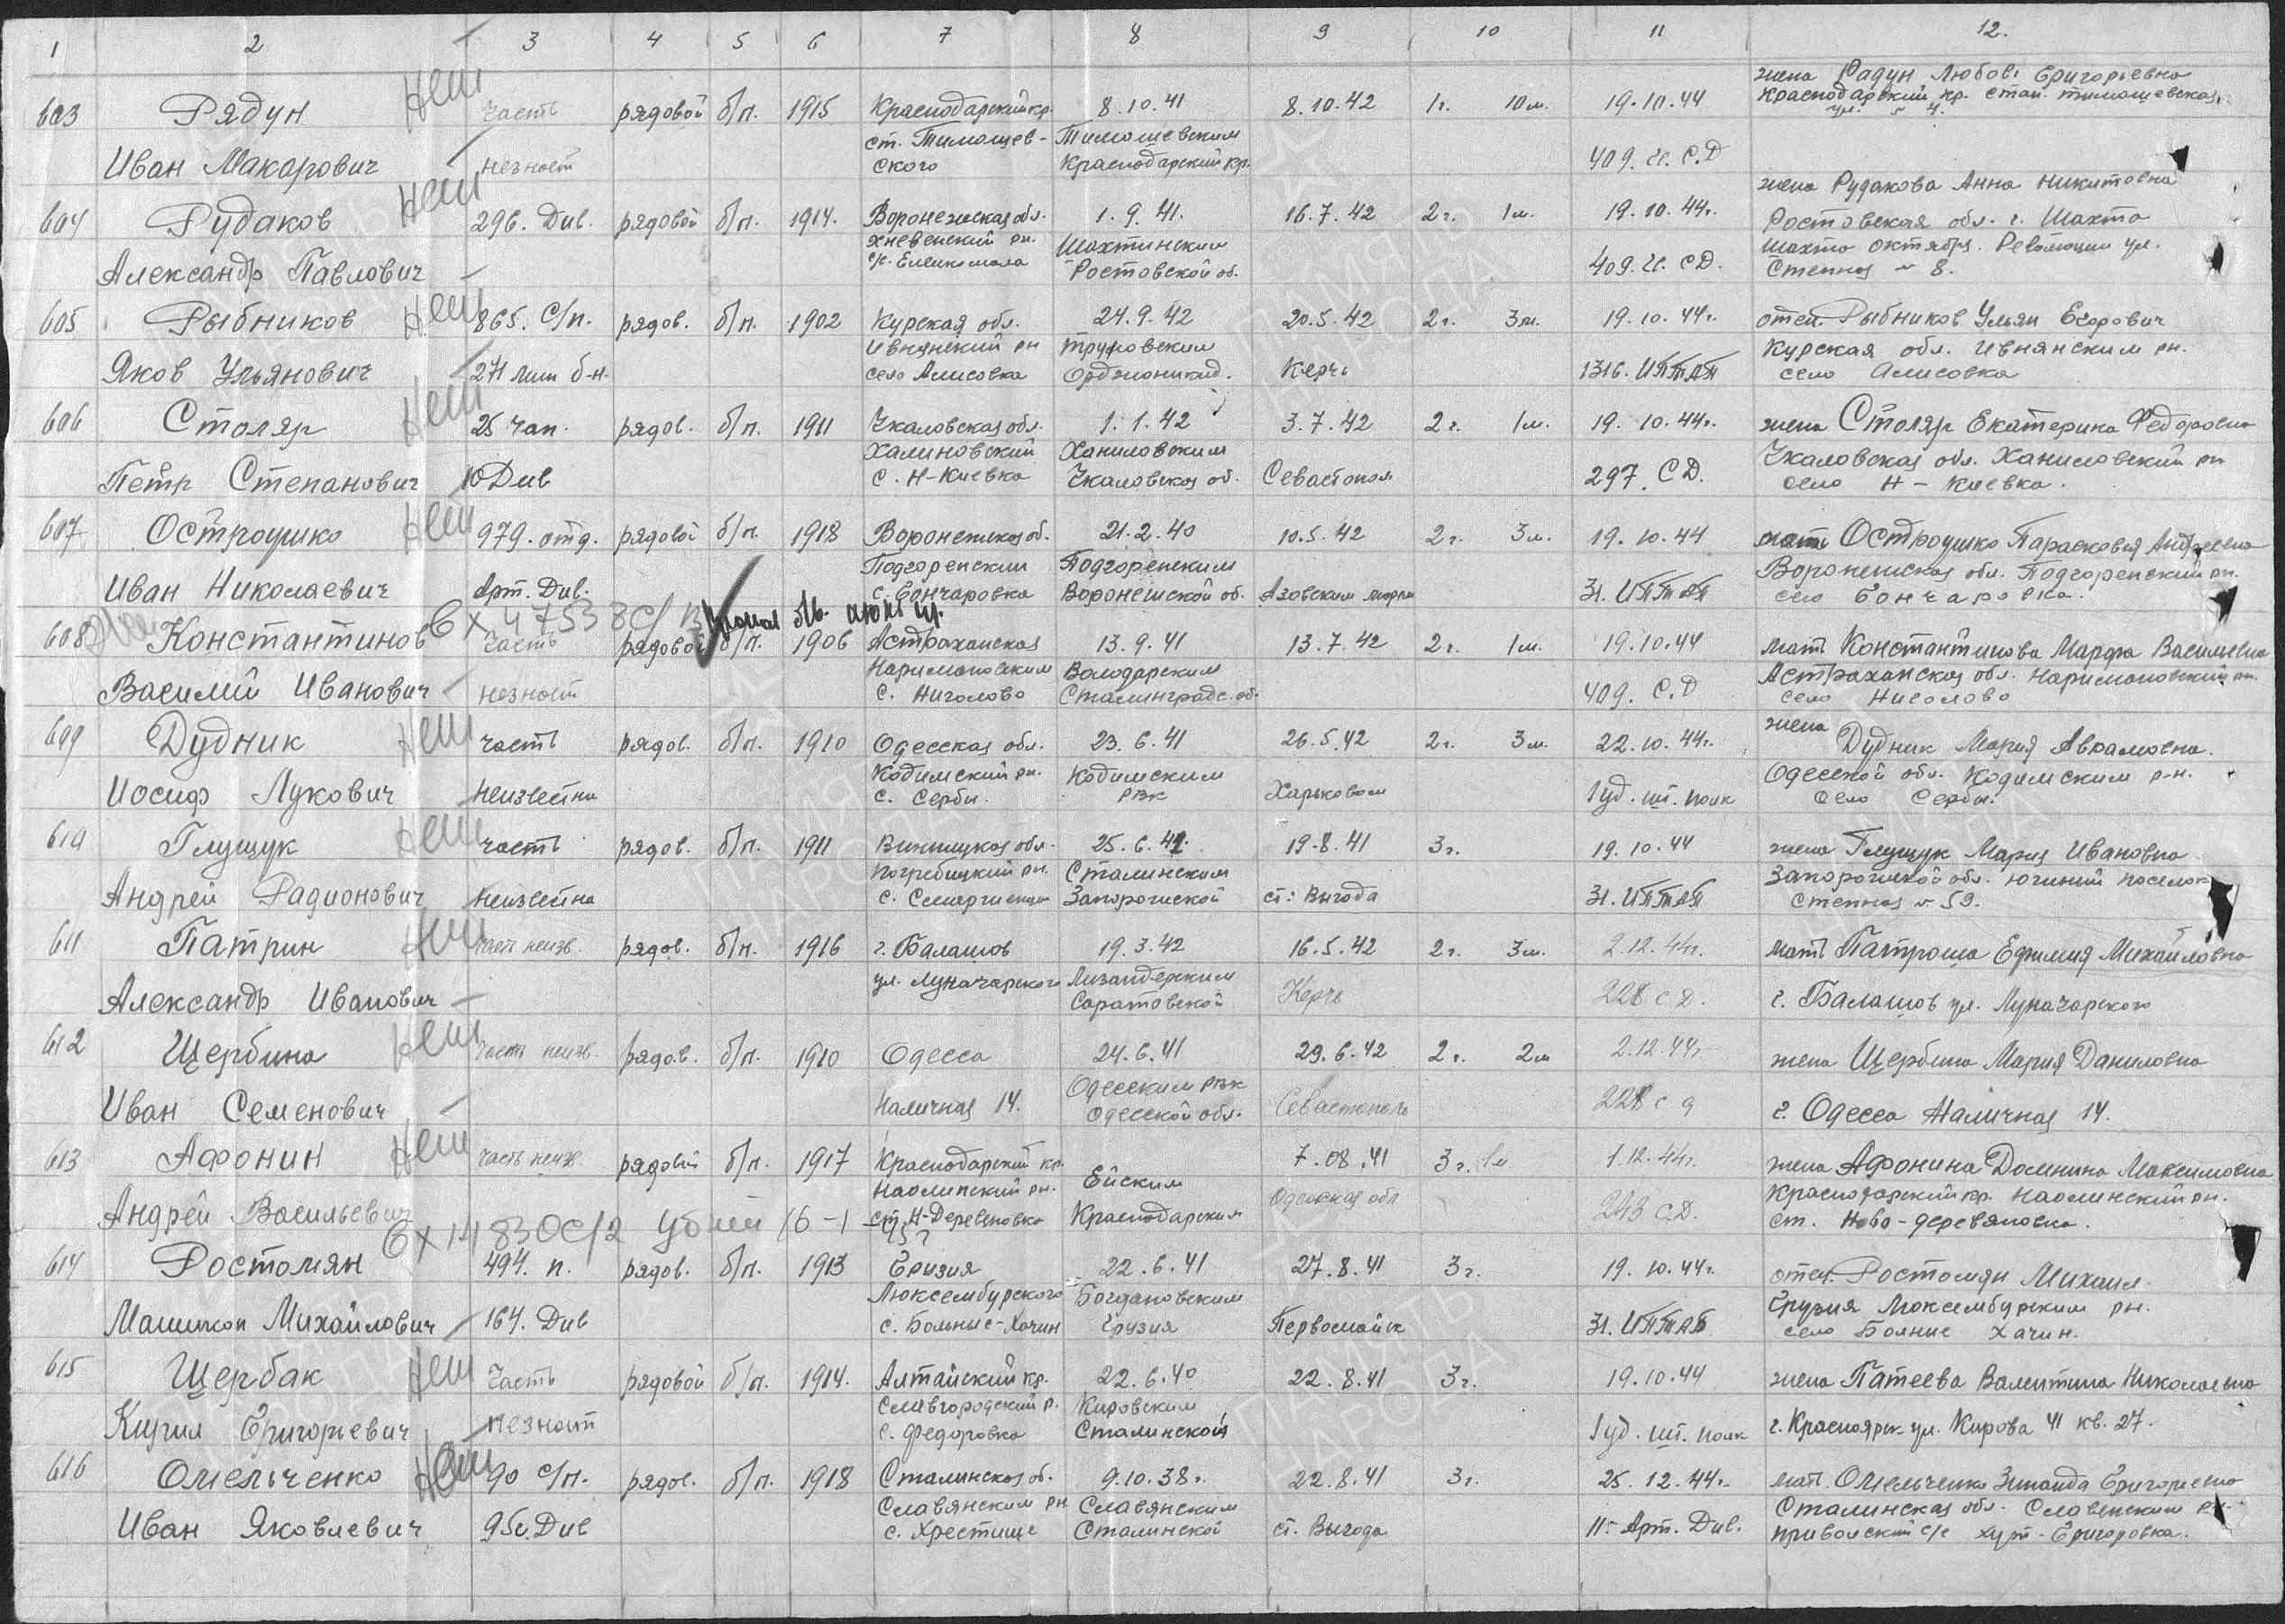 1 2 3 4 5 6 7 8 9 10 11 12.
жена Радун Любовь Григорьевна
603 Рядун Нет Часть рядовой б/п. 1915 Краснодарский кр. 8.10.41 8.10.42 1г. 10м. 19.10.44 Краснодарский кр. стан. тимошевская,
ст. Тимошев- Тимошевским
Иван Макарович незнает ского Краснодарский кр. 409. И. С.Д
жена Рудакова Анна Никитовна
604 Рудаков Нет 296. Див. рядовой б/п. 1914. Воронежская обл. 1.9.41. 16.7.42 2г. 1м. 19.10.44г. Ростовская обл. г. Шахта
Шахтинским Шахта октябр. Революции ул.
Александр Павлович Ростовской об. 409. И. СД. Степная № 8.
605 Рыбников Нет 865. С/п. рядов. б/п. 1902 Курская обл. 24.9.42 20.5.42 2г. 3м. 19.10.44г. отец Рыбников Ульян Егорович
Ивнянский рн Курская обл. Ивнянским рн.
Яков Ульянович 271 б-н. село Алисовка Орджоникид. Керчь 1316. ИПТАП село Алисовка
606 Столяр Нет 25 Чап. рядов. б/п. 1911 Чкаловская обл. 1.1.42 3.7.42 2г. 1м. 19.10.44г. жена Столяр Екатерина Федоровна
Халиновский Ханиловским Чкаловская обл. Ханиловский рн
Петр Степанович Див с. Н-Киевка Чкаловская об. Севастопол 297. СД. село Н-Киевка.
607 Остроушко Нет 979. отд. рядовой б/п. 1918 Воронежская об. 21.2.40 10.5.42 2г. 3м. 19.10.44 мать Остроушко Парасковья Андреевна
Подгоренский Подгоренским Воронежская обл. Подгоренский рн.
Иван Николаевич Арт. Див. с. Гончаровка Воронежской об. Азовским морем 31. ИПТАП село Гончаровка.
608 Константинов Часть рядовой б/п. 1906 Астраханская 13.9.41 13.7.42 2г. 1м. 19.10.44 мать Константинова Марфа Васильевна
Наримановским Володарским Астраханская обл. Наримановский рн.
Василий Иванович незнает с. Николово Сталинградс. об. 409. С.Д село Николово
жена
609 Дудник Нет часть рядов. б/п. 1910 Одесская обл. 23.6.41 26.5.42 2г. 3м. 22.10.44г. Дудник Мария Аврамовна.
Кодимский рн. Кодимским Одесской обл. Кодимским р-н.
Иосиф Лукович Неизвестна с. Сербы. РВК Харьковом 1 уд. шт. полк село Сербы.
610 Глущук Нет часть рядов. б/п. 1911 Виницкая обл. 25.6.41. 19.8.41 3г. 19.10.44 жена Глущук Мария Ивановна
Погребищкий рн. Сталинским Запорожской обл. южиний поселок
Андрей Радионович Неизвестна Запорожской ст: Выгода 31. ИПТАП Степная № 59.
611 Патрин Нет часть неизв. рядов. б/п. 1916 г. Балашов 19.3.42 16.5.42 2г. 3м. 2.12.44г. мать Патроша Ефимия Михайловна
ул. Луначарского
Александр Иванович Саратовской Керчь 228 с.д. г. Балашов ул. Луначарского
612 Щербина Нет часть неизв. рядов. б/п. 1910 Одесса 24.6.41 29.6.42 2г. 2м 2.12.44г. жена Щербина Мария Даниловна
Одесским РВК
Иван Семенович Наличная 14. Одесской обл. Севастополь 228 с д г. Одесса Наличная 14.
613 Афонин Нет часть неизв. рядовой б/п. 1917 Краснодарский кр. 7.08.41 3г. 1м 1.12.44г. жена Афонина Доминина Максимовна
Наолинский рн. Ейским Одесская обл Краснодарский кр. Наолинский рн.
Андрей Васильевич ст. Н-Деревяновка Краснодарским 243 С.Д. ст. Ново-деревяновка.
614 Ростомян 494. п. рядов. б/п. 1913 Грузия 22.6.41 27.8.41 3г. 19.10.44г. отец. Ростомян Михаил.
Люксембурского Богдановским Грузия Люксембурским рн.
Михайлович 164. Див с. Больнис-Хачин Грузия Первомайск 31. ИПТАП село Болнис Хачин.
615 Щербак Нет Часть рядовой б/п. 1914. Алтайский кр. 22.6.40 22.8.41 3г. 19.10.44 жена Патеева Валентина Николаевна
Славгородский р. Кировским
Кирил Григорьевич незнает с. Федоровка Сталинской 1 уд. шт. полк г. Красноярск ул. Кирова 41 кв. 27.
616 Омельченко Нет 90 с/п. рядов. б/п. 1918 Сталинская об. 9.10.38г. 22.8.41 3г. 25.12.44г. мать. Омельченко Зинаида Григорьевна
Славянским рн Славянским Сталинская обл. Славянским рн.
Иван Яковлевич 95с. Див с. Хрестище Сталинской ст. Выгода 11- Арт. Див. Привольский с/с хут-Григоровка.